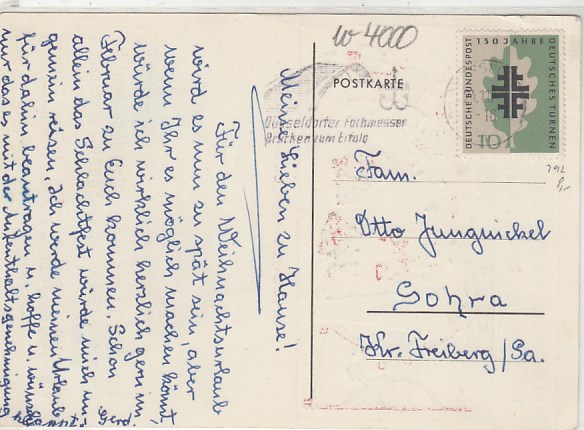 w 4000
POSTKARTE
Düsseldorfer Fachmessen
Brücken zum Erfolg
DEUTSCHE BUNDESPOST
150 JAHRE
DEUTSCHES TURNEN
10
292
Fam.
Otto Jungnickel
Gohra
Kr. Freiberg/Sa.
Meine Lieben zu Hause!
Für den Weihnachtsurlaub
wird es nun zu spät sein, aber
wenn Ihr es möglich machen könnt
würde ich wirklich herzlich gern im
Februar zu Euch kommen. Schon
allem das Schlachtfest würde mich un-
gemein reizen. Ich werde meinen Urlaub
für dahin beantragen u. hoffe u. wünsche
nur das es mit der Aufenthaltsgenehmigung
klappt. Gerd.